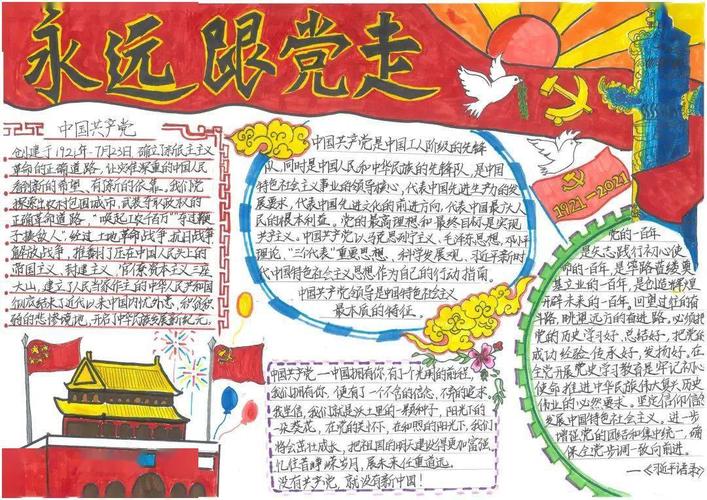 永远跟党走
中国共产党
创建于1921年7月23日,确立了马克思主义
革命的正确道路,让灾难深重的中国人民
看到新的希望,有了新的依靠。我们党
探索出农村包围城市,武装夺取政权的
正确革命道路,“唤起工农千百万”夺过鞭
子揍敌人”经过土地革命战争,抗日战争
解放战争,推翻了压在中国人民头上的
帝国主义,封建主义,官僚资本主义三座
大山,建立了人民当家作主的中华人民共和国
彻底结束了近代以来中国内忧外患,积贫积弱
的悲惨境地,开启中华民族发展新纪元。
中国共产党是中国工人阶级的先锋
队,同时是中国人民和中华民族的先锋队,是中国
特色社会主义事业的领导核心,代表中国先进生产力的发
展要求,代表中国先进文化的前进方向,代表中国最广大人
民的根本利益。党的最高理想和最终目标是实现
共产主义。中国共产党以马克思列宁主义,毛泽东思想,邓小平
理论,“三个代表”重要思想,科学发展观,习近平新时
代中国特色社会主义思想作为自己的行动指南
中国共产党领导是中国特色社会主义
最本质的特征。
1921-2021
党的一百年
是矢志践行初心使
命的一百年,是筚路蓝缕奠
基立业的一百年,是创造辉煌
开辟未来的一百年,回望过往的奋
斗路,眺望远方的奋进路,必须把
党的历史学习好,总结好,把党的
成功经验传承好,发扬好,在
全党开展党史学习教育是牢记初心
使命推进中华民族伟大复兴历史
伟业的必然要求。坚定信仰信念
发展中国特色社会主义,进一步
增强党的团结和集中统一,确
保全党步调一致向前进。
—《习近平语录》
中国共产党—中国拥有你,有了个光明的前程,
我们拥有你,便有了一个不舍的信念,不弃的追求
我坚信,我们就是沃土里的一颗种子,阳光下的
一朵葵花,在党的关怀下,在和煦的阳光下,我们
将会茁壮成长,把祖国的明天建设得更加富强
忆往昔峥嵘岁月,展未来任重道远。
没有共产党,就没有新中国!